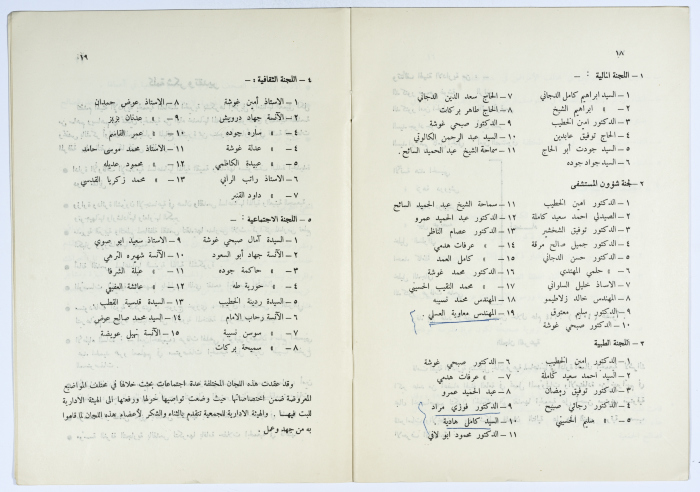 ١٨
١ – اللجنة المالية : –
١ – السيد ابراهيم كامل الدجاني
٢ – » ابراهيم الشيخ
٣ – الدكتور امين الخطيب
٤ – الحاج توفيق عابدين
٥ – السيد جودت أبو الحاج
٦ – السيد جواد جوده
٧ – الحاج سعد الدين الدجاني
٨ – الحاج طاهر بركات
٩ – الدكتور صبحي غوشة
١٠ – السيد عبد الرحمن الكالوتي
١١ – سماحة الشيخ عبد الحميد السائح .
٢ – لجنة شؤون المستشفى
١ – الدكتور امين الخطيب
٢ – الصيدلي احمد سعيد كاملة
٣ – الدكتور توفيق الشخشير
٤ – الدكتور جميل صالح مرقة
٥ – الدكتور حسن الدجاني
٦ – » حلمي المهتدي
٧ – الاستاذ خليل السلواني
٨ – المهندس خالد زلاطيمو
٩ – الدكتور سليم معتوق
١٠ – الدكتور صبحي غوشة
١١ – سماحة الشيخ عبد الحميد السائح
١٢ – الدكتور عبد الحميد عمرو
١٣ – الدكتور عصام الناظر
١٤ – » عرفات هدمي
١٥ – » كامل العمد
١٦ – الدكتور محمد غوشة
١٧ – » محمد النقيب الحسيني
١٨ – المهندس محمد نسيبه
١٩ – المهندس معاوية العسلي
٣ – اللجنة الطبية
١ – الدكتور امين الخطيب
٢ – السيد احمد سعيد كاملة
٣ – الدكتور توفيق رمضان
٤ – الدكتور رجائي صنيح
٥ – » سليم الحسيني
٦ – الدكتور صبحي غوشة
٧ – » عرفات هدمي
٨ – عبد الحميد عمرو
٩ – الدكتور فوزي مراد
١٠ – السيد كامل هادية
١١ – الدكتور محمود ابو لافي
١٩
٤ – اللجنة الثقافية : –
١ – الاستاذ أمين غوشة
٢ – الآنسة جهاد درويش
٣ – » ساره جوده
٤ – » عدلة غوشة
٥ – » عبيدة الكاظمي
٦ – الاستاذ راتب الرابي
٧ – » داود القنبر
٨ – الاستاذ عوض حمدان
٩ – » عدنان بزبز
١٠ – » عمر القاسم
١١ – الاستاذ محمد موسى حامد
١٢ – » محمود عديله
١٣ – » محمد زكريا القدسي
٥ – اللجنة الاجتماعية : –
١ – السيدة آمال صبحي غوشة
٢ – الآنسة جهاد أبو السعود
٣ – » حاكمة جوده
٤ – » حورية طه
٥ – السيدة ردينة الخطيب
٦ – الآنسة رحاب الامام
٧ – » سوسن نسيبة
٨ – » سميحة بركات
٩ – الاستاذ سعيد ابو صوي
١٠ – الآنسة شهيره الزهي
١١ – » عبلة الشرفا
١٢ – » عائشة العفيفي
١٣ – السيدة قدسية القطب
١٤ – السيد محمد صالح عوض
١٥ – الآنسة نهيل عويضة
وقد عقدت هذه اللجان المختلفة عدة اجتماعات بحثت خلالها في مختلف المواضيع
المعروضة ضمن اختصاصاتها حيث وضعت تواصيها حولها ورفعتها الى الهيئة الادارية
للبت فيها . والهيئة الادارية للجمعية تتقدم بالثناء والشكر لأعضاء بهذه اللجان لما قاموا
به من جهد وعمل .